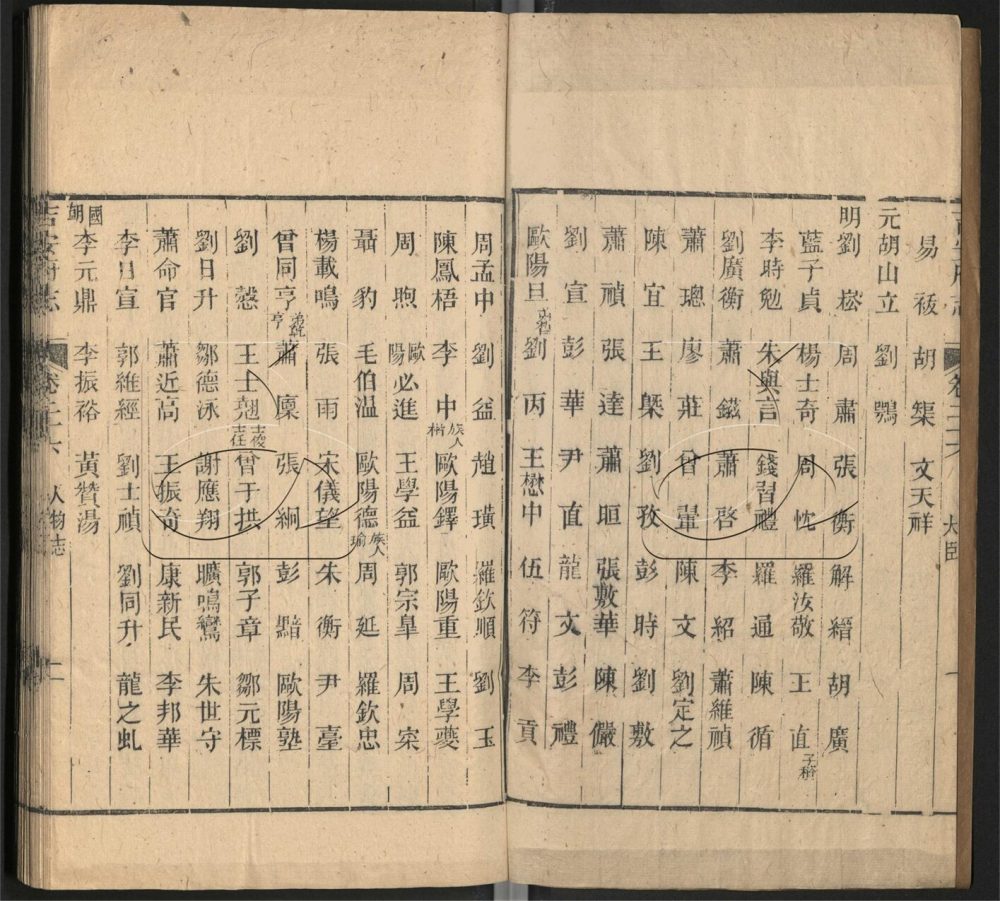 易祓 胡榘 文天祥
元胡山立 劉鶚
明劉崧 周肅 張衡 解縉 胡廣
藍子貞 楊士奇 周忱 羅汝敬 王直子𥠖
李時勉 朱與言 錢習禮 羅通 陳循
劉廣衡 蕭鎡 蕭啓 李紹 蕭維禎
蕭璁 廖莊 曾翬 陳文 劉定之
陳宜 王㮣 劉孜 彭時 劉敷
蕭禎 張達 蕭晅 張敷華 陳儼
劉宣 彭華 尹直 龍文 彭禮
歐陽旦 劉丙 王懋中 伍符 李貢
周孟中 劉益 趙璜 羅欽順 劉玉
陳鳳梧 李中族人楠 歐陽鐸 歐陽重 王學夔
周煦 歐陽必進 王學益 郭宗臯 周寀
聶豹 毛伯溫 歐陽德族人瑜 周延 羅欽忠
楊載鳴 張雨 宋儀望 朱衡 尹臺
曾同亨弟乾亨 蕭廩 張綱 彭黯 歐陽塾
劉慤 王士翹士俊士任 曾于拱 郭子章 鄒元標
劉日升 鄒德泳 謝應翔 曠鳴鸞 朱世守
蕭命官 蕭近高 王振奇 康新民 李邦華
李日宣 郭維經 劉士禎 劉同升 龍之虬
國朝李元鼎 李振裕 黃贊湯
吉安府志 卷二十六 人物志 二